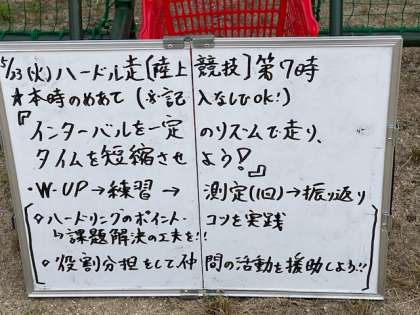 5/23(火)ハードル走[陸上競技]第7時
★本時のめあて(※記入なしでOK!)
『インターバルを一定のリズムで走り、
タイムを短縮させよう!』
・W-UP→練習→測定(1回)→振り返り
◦ハードリングのポイント・コツを実践
↳課題解決の工夫を!!
◦役割分担をして仲間の活動を援助しよう!!